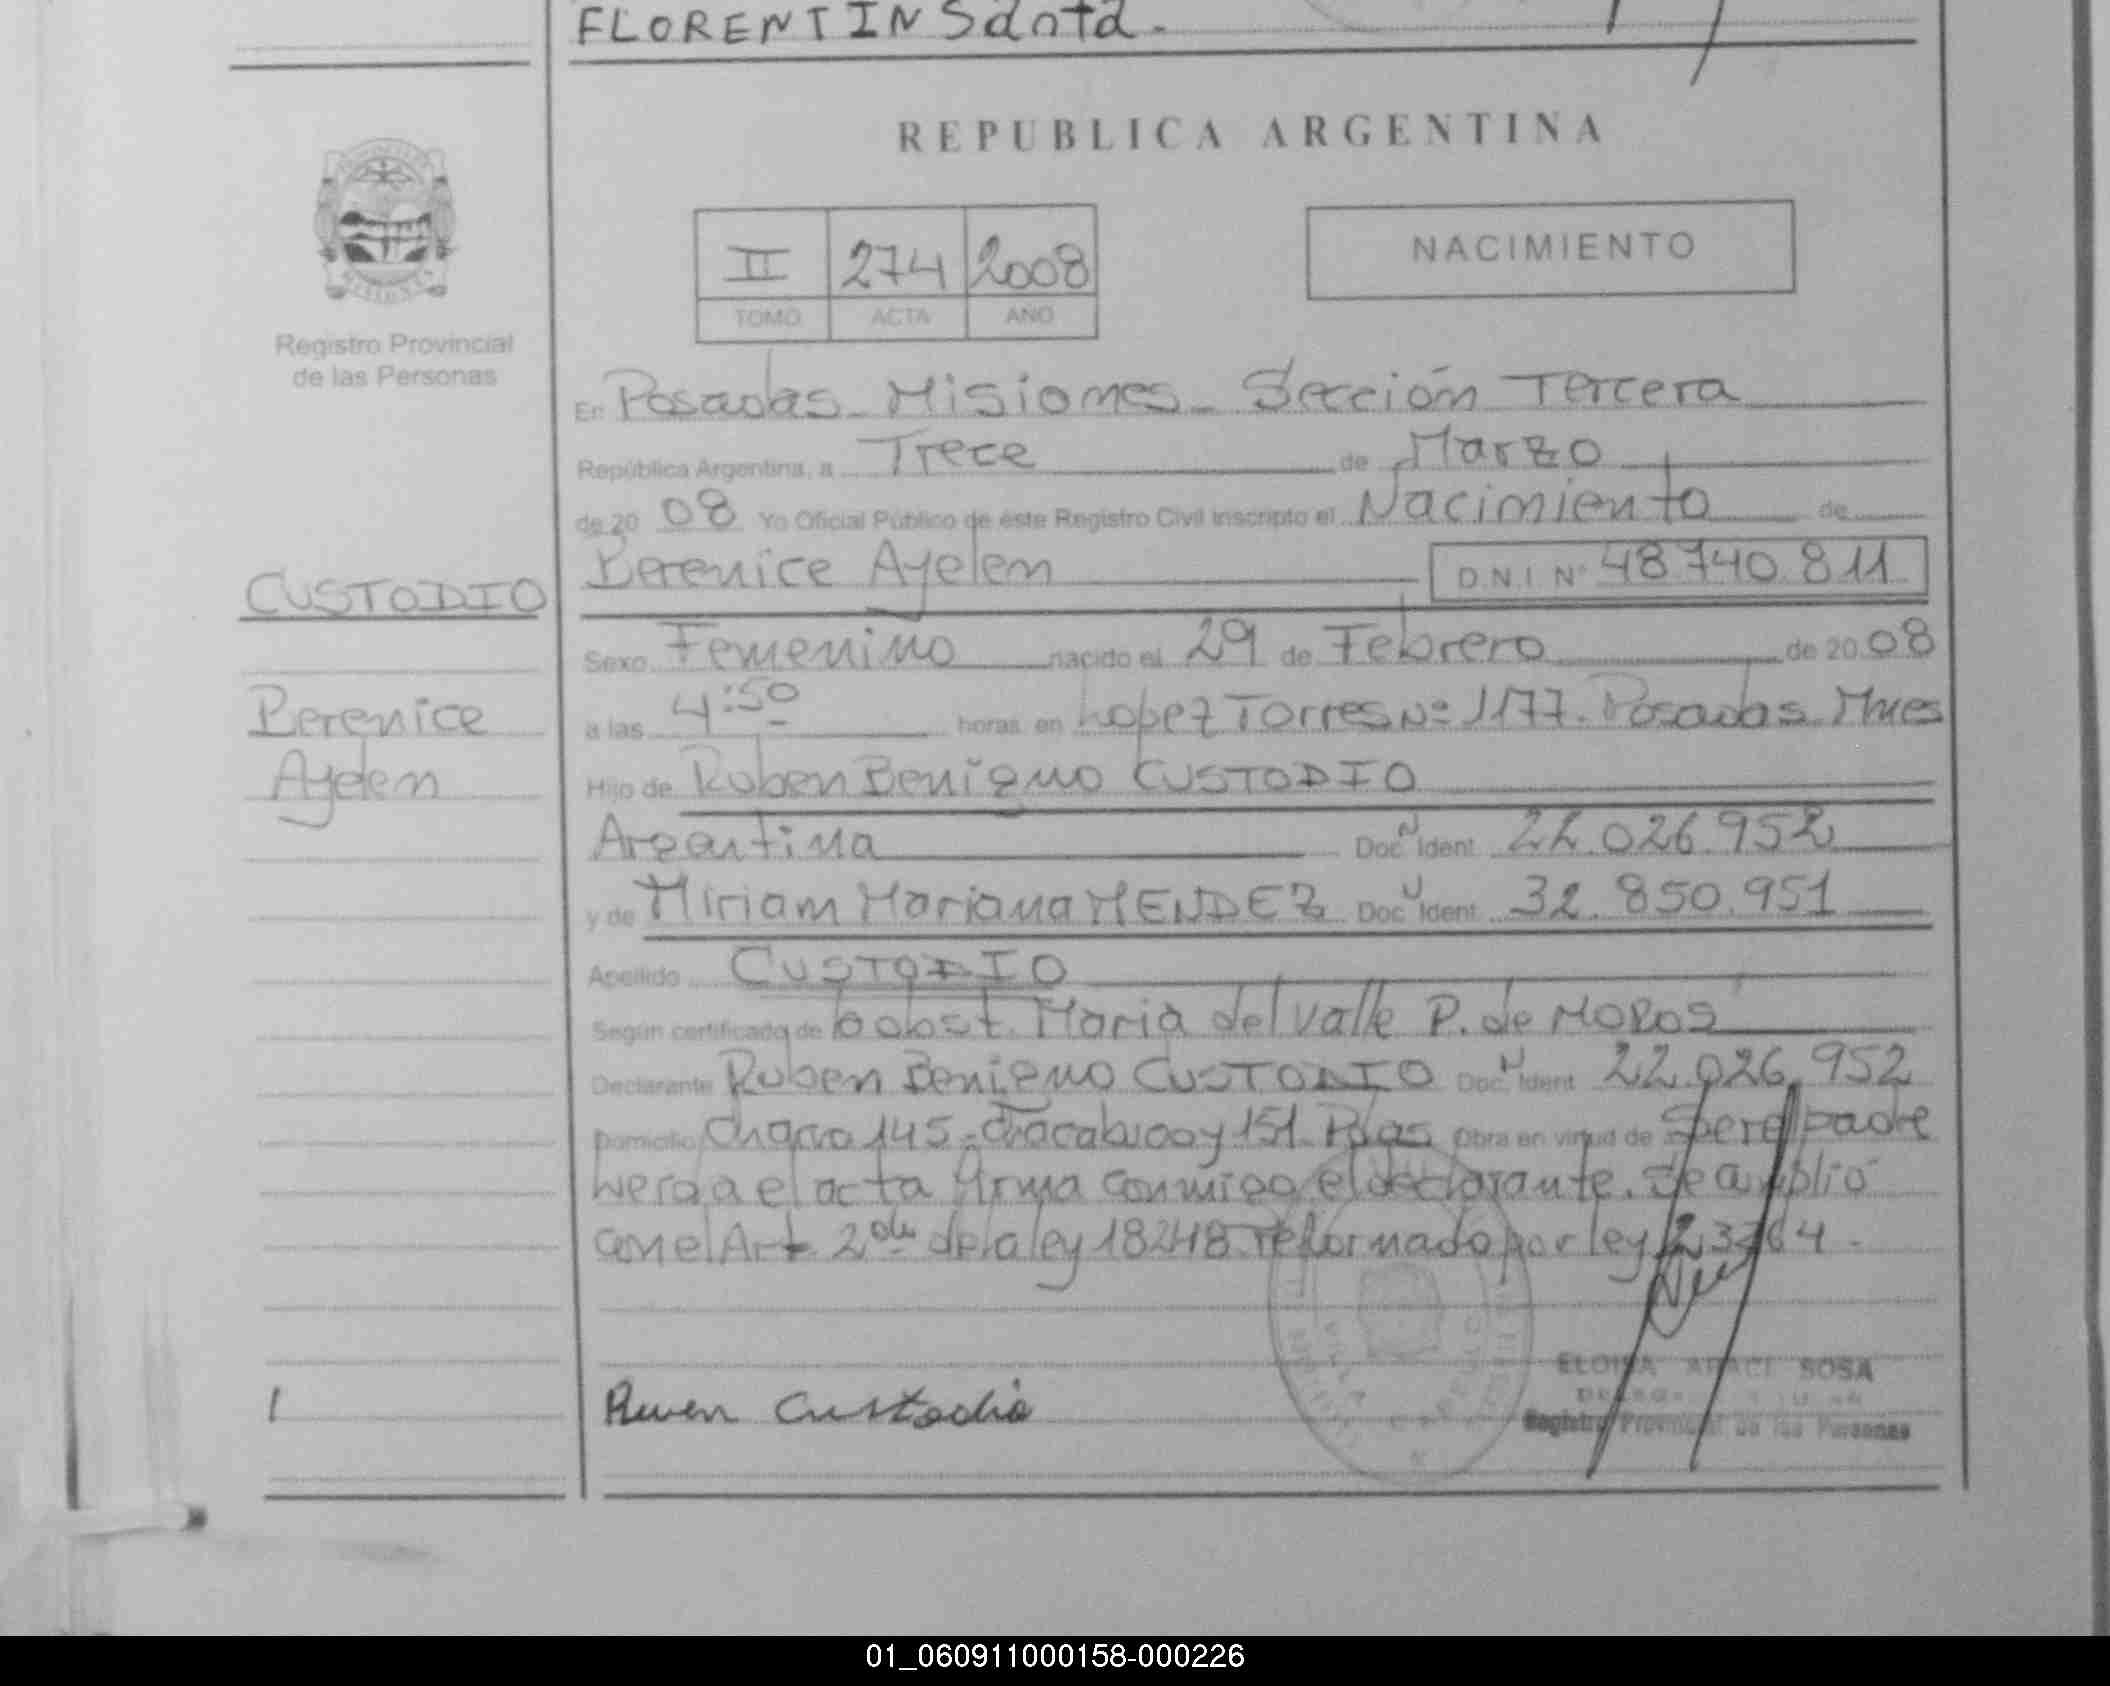 FLORENTIN Santa.
REPUBLICA ARGENTINA
II 274 2008
TOMO ACTA AÑO
NACIMIENTO
Registro Provincial
de las Personas
En Posadas - Misiones - Sección Tercera
República Argentina, a Trece de Marzo
de 20 08 Yo Oficial Público de éste Registro Civil inscripto el Nacimiento de
CUSTODIO
Berenice Ayelem
D.N.I. Nº 48.740.811
Sexo Femenino nacido el 29 de Febrero de 20 08
Berenice
Ayelen
a las 4:50 horas en Lopez Torres Nº 1177. Posadas. Mnes
Hijo de Ruben Benigno CUSTODIO
Argentina Doc. N Ident. 22.026.952
y de Miriam Mariana MENDEZ Doc. N Ident. 32.850.951
Apellido CUSTODIO
Según certificado de obst. Maria del Valle P. de MOROS
Declarante Ruben Benigno CUSTODIO Doc. N Ident. 22.026.952
Domicilio Chaco 145 - 151. Pdas Obra en virtud de Ser el padre
el acta firma conmigo el declarante. Se
con el Art 2 de la ley 18248 reformado por ley
Ruven Custodio
ELOISA ARACI SOSA
Registro Provincial de las Personas
01_060911000158-000226